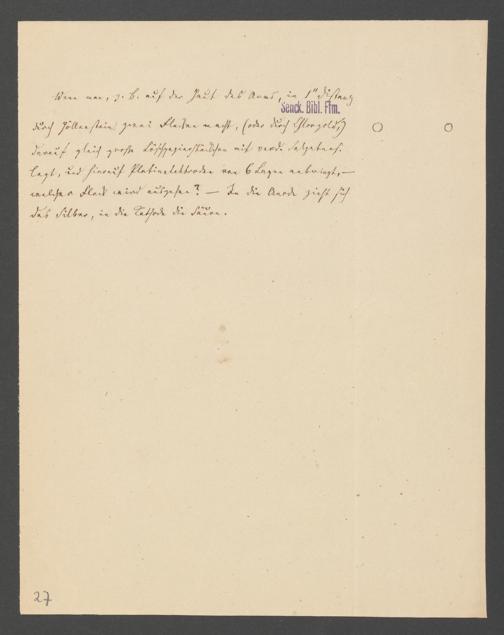 Wenn man, z. B. auf der Haut des Arms, in 1" Distanz
Senck. Bibl. Ffm.
durch Höllenstein zwei Flecken macht, (oder durch Chlorgold,)
darauf gleich große Löschpapierscheibchen mit verd.
legt, und hierauf Platinelektroden von 6 anbringt, —
welcher Fleck wird ausgehen? — In die Anode zieht sich
das Silber, in die Kathode die Säure.
27